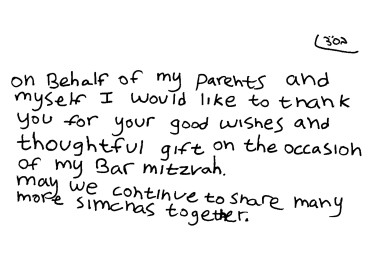 302
on Behalf of my parents and
myself I would like to thank
you for your good wishes and
thoughtful gift on the occasion
of my Bar mitzvah.
may we continue to share many
more simchas together.